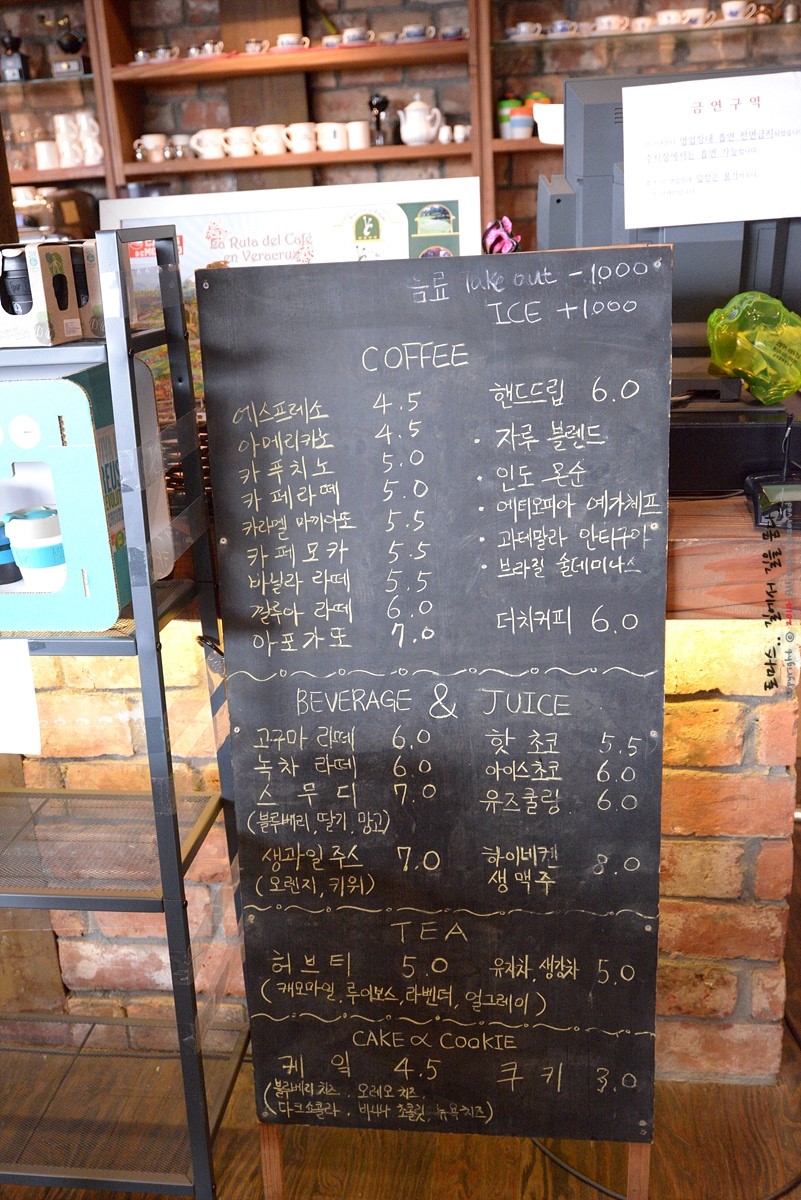 금연구역
La Ruta del Café
en Veracruz
음료 Take out -1.000
ICE +1.000
COFFEE
에스프레소 4.5
아메리카노 4.5
카푸치노 5.0
카페라떼 5.0
카라멜 마끼아또 5.5
카페모카 5.5
바닐라 라떼 5.5
깔루아 라떼 6.0
아포가또 7.0
핸드드립 6.0
· 자루 블렌드
· 인도 몬순
· 에티오피아 예가체프
· 과테말라 안티구아
· 브라질 술데미나스
더치커피 6.0
BEVERAGE & JUICE
고구마 라떼 6.0
녹차 라떼 6.0
스무디 7.0
(블루베리, 딸기, 망고)
생과일주스 7.0
(오렌지, 키위)
핫 초코 5.5
아이스초코 6.0
유즈쿨링 6.0
하이네켄
생맥주 8.0
TEA
허브티 5.0
(캐모마일, 루이보스, 라벤더, 얼그레이)
유자차, 생강차 5.0
CAKE & COOKIE
케익 4.5
(블루베리치즈, 오레오치즈,
다크쇼콜라, 바나나 초콜릿, 뉴욕치즈)
쿠키 3.0